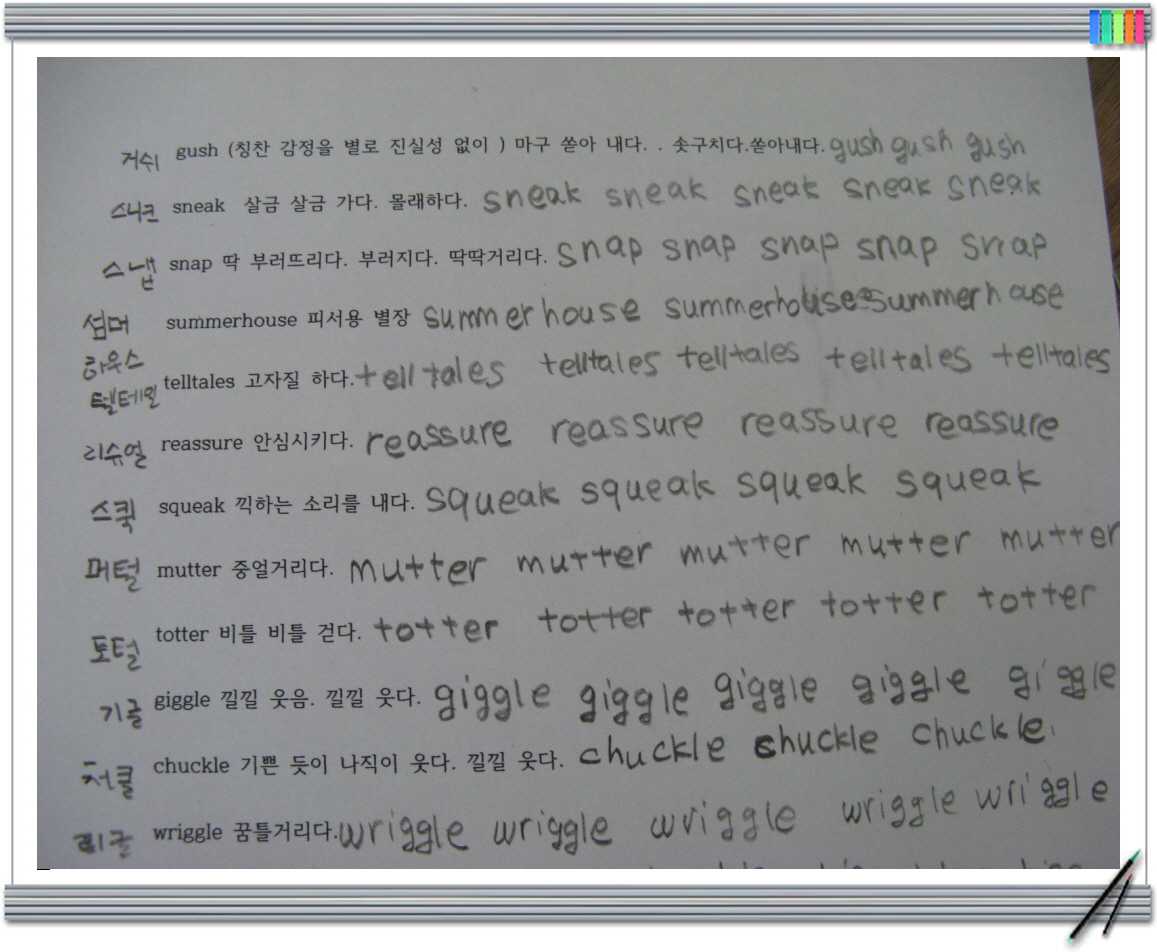 거쉬 gush (칭찬 감정을 별로 진실성 없이 ) 마구 쏟아 내다. . 솟구치다.쏟아내다. gush gush gush
스니크 sneak 살금 살금 가다. 몰래하다. sneak sneak sneak sneak sneak
스냅 snap 딱 부러뜨리다. 부러지다. 딱딱거리다. snap snap snap snap snap
섬머 summerhouse 피서용 별장 summerhouse summerhouse summerhouse
하우스
텔테일 telltales 고자질 하다. telltales telltales telltales telltales telltales
리슈얼 reassure 안심시키다. reassure reassure reassure reassure
스퀵 squeak 끽하는 소리를 내다. squeak squeak squeak squeak
머털 mutter 중얼거리다. mutter mutter mutter mutter mutter
토털 totter 비틀 비틀 걷다. totter totter totter totter totter
기글 giggle 낄낄 웃음. 낄낄 웃다. giggle giggle giggle giggle giggle
처클 chuckle 기쁜 듯이 나직이 웃다. 낄낄 웃다. chuckle chuckle chuckle.
리글 wriggle 꿈틀거리다. wriggle wriggle wriggle wriggle wriggle